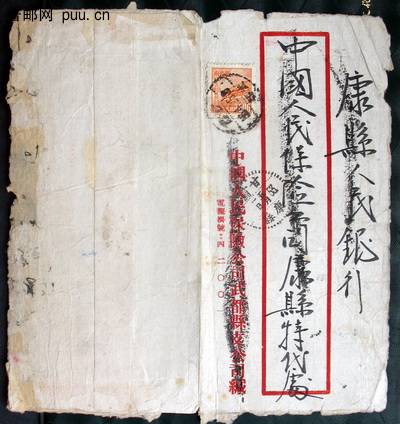 康縣人民銀行
中國人民保險公司康縣特代處
中國人民保險公司武都縣支公司緘
電報掛號:四一〇〇
邮网 puu.cn